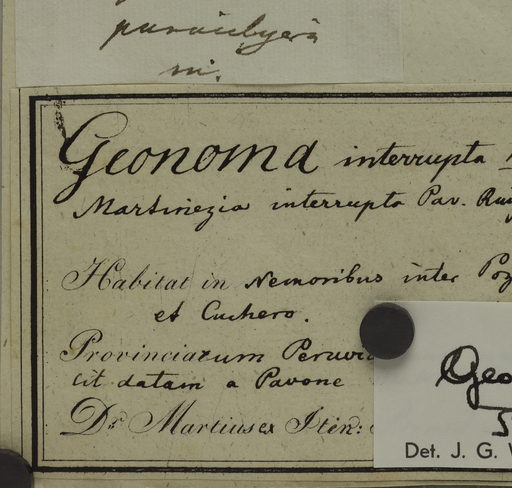 m.
Geonoma interrupta
Martinezia interrupta Pav. Rui
Habitat in Nemoribus inter Poz
et Cuchero.
Provinciarum Peruvia
sit datam a Pavone
Dr Martius ex Itin:
Geo
5
Det. J. G. W